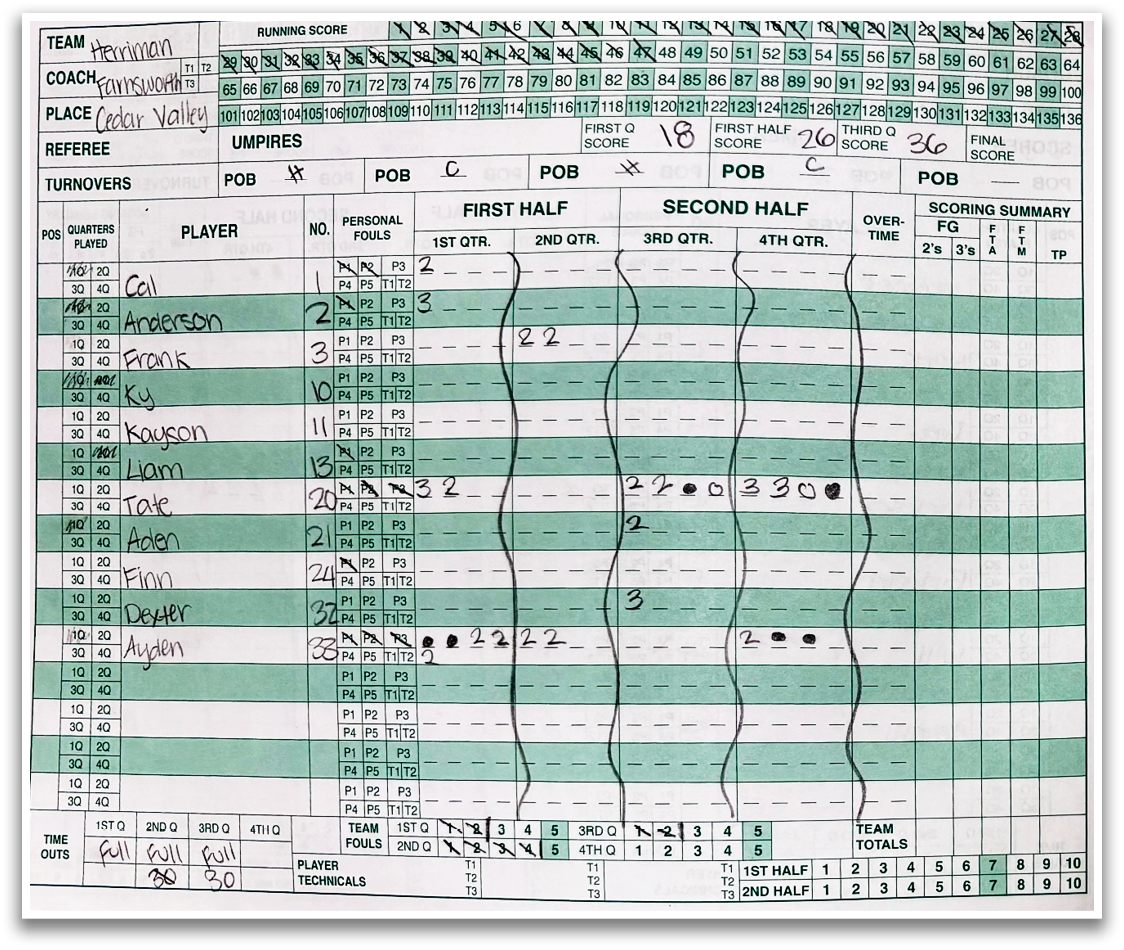 TEAM Herriman
RUNNING SCORE 1 2 3 4 5 6 7 8 9 10 11 12 13 14 15 16 17 18 19 20 21 22 23 24 25 26 27 28
29 30 31 32 33 34 35 36 37 38 39 40 41 42 43 44 45 46 47 48 49 50 51 52 53 54 55 56 57 58 59 60 61 62 63 64
COACH Farnsworth T1 T2 T3
65 66 67 68 69 70 71 72 73 74 75 76 77 78 79 80 81 82 83 84 85 86 87 88 89 90 91 92 93 94 95 96 97 98 99 100
PLACE Cedar Valley
101 102 103 104 105 106 107 108 109 110 111 112 113 114 115 116 117 118 119 120 121 122 123 124 125 126 127 128 129 130 131 132 133 134 135 136
REFEREE UMPIRES FIRST Q SCORE 18 FIRST HALF SCORE 26 THIRD Q SCORE 36 FINAL SCORE
TURNOVERS POB H POB C POB H POB C POB —
POS QUARTERS PLAYED PLAYER NO. PERSONAL FOULS FIRST HALF SECOND HALF OVER-TIME SCORING SUMMARY
1ST QTR. 2ND QTR. 3RD QTR. 4TH QTR. FG 2's 3's FTA FTM TP
1Q 2Q P1 P2 P3 2
3Q 4Q Cal 1 P4 P5 T1 T2
1Q 2Q P1 P2 P3 3
3Q 4Q Anderson 2 P4 P5 T1 T2
1Q 2Q P1 P2 P3 2 2
3Q 4Q Frank 3 P4 P5 T1 T2
1Q 2Q P1 P2 P3
3Q 4Q Ky 10 P4 P5 T1 T2
1Q 2Q P1 P2 P3
3Q 4Q Kayson 11 P4 P5 T1 T2
1Q 2Q P1 P2 P3
3Q 4Q Liam 13 P4 P5 T1 T2
1Q 2Q P1 P2 P3 3 2 2 2 ● O 3 3 O ●
3Q 4Q Tate 20 P4 P5 T1 T2
1Q 2Q P1 P2 P3 2
3Q 4Q Aden 21 P4 P5 T1 T2
1Q 2Q P1 P2 P3
3Q 4Q Finn 24 P4 P5 T1 T2
1Q 2Q P1 P2 P3 3
3Q 4Q Dexter 32 P4 P5 T1 T2
1Q 2Q P1 P2 P3 ● ● 2 2 2 2 2 ● ●
3Q 4Q Ayden 33 P4 P5 T1 T2 2
1Q 2Q P1 P2 P3
3Q 4Q P4 P5 T1 T2
1Q 2Q P1 P2 P3
3Q 4Q P4 P5 T1 T2
1Q 2Q P1 P2 P3
3Q 4Q P4 P5 T1 T2
1Q 2Q P1 P2 P3
3Q 4Q P4 P5 T1 T2
TIME OUTS 1ST Q 2ND Q 3RD Q 4TH Q
Full Full Full
30 30
TEAM FOULS 1ST Q 1 2 3 4 5 3RD Q 1 2 3 4 5 TEAM TOTALS
2ND Q 1 2 3 4 5 4TH Q 1 2 3 4 5
PLAYER TECHNICALS T1 T2 T3 T1 T2 T3 T1 T2 T3 1ST HALF 1 2 3 4 5 6 7 8 9 10
2ND HALF 1 2 3 4 5 6 7 8 9 10